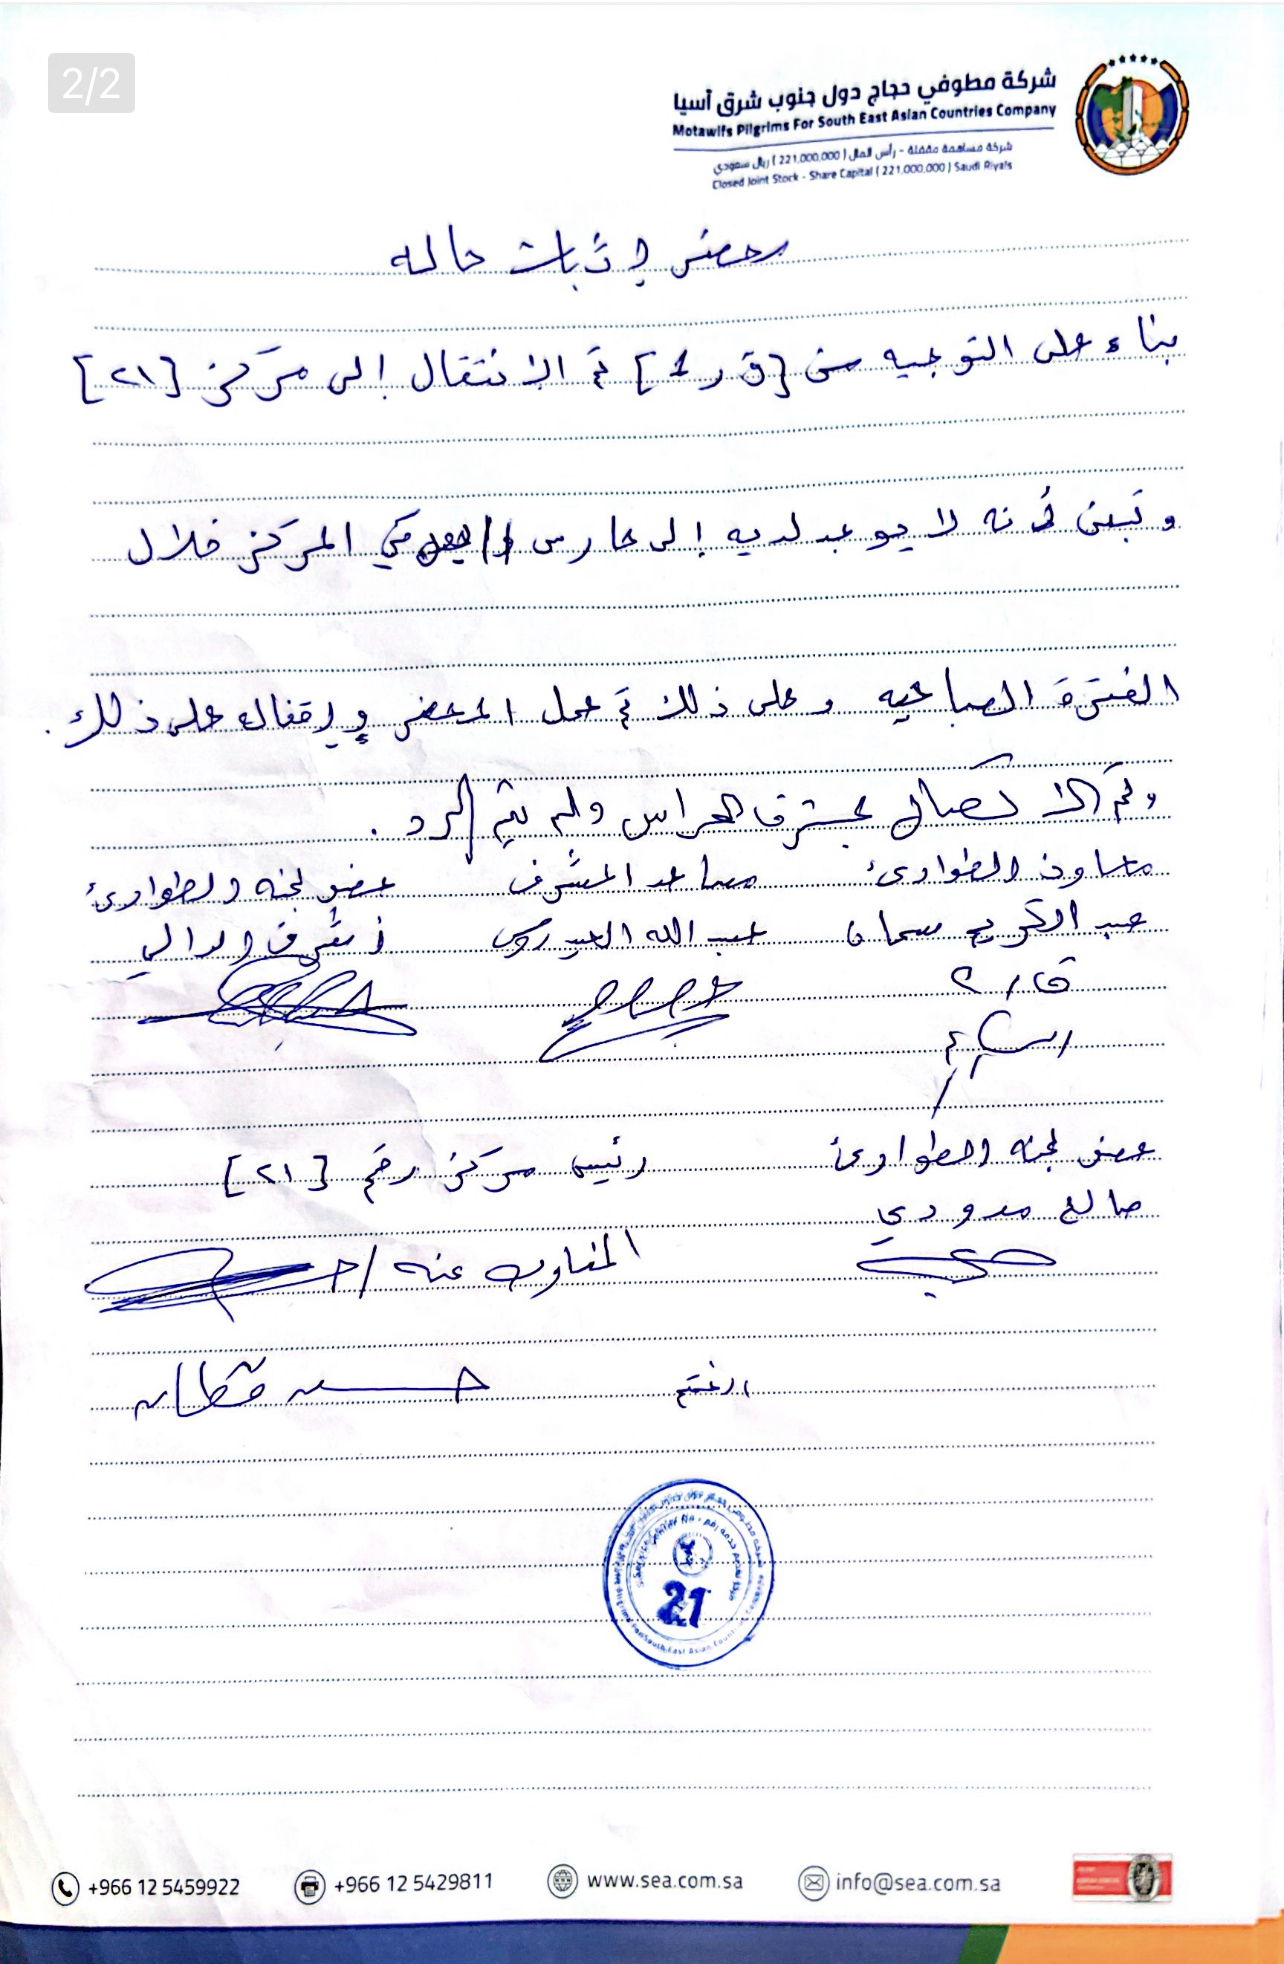 2/2
شركة مطوفي حجاج دول جنوب شرق آسيا
Motawifs Pilgrims For South East Asian Countries Company
شركة مساهمة مقفلة - رأس المال ( 221,000,000 ) ريال سعودي
Closed Joint Stock - Share Capital ( 221,000,000 ) Saudi Riyals
محضر إثبات حاله
بناء على التوجيه من [ق ر 1] تم الانتقال إلى مركز [٢١]
وتبين أنه لا يوجد لديه إلى حارس في المركز خلال
الفترة الصباحيه وعلى ذلك تم عمل المحضر وإقفاله على ذلك.
وتم الاتصال بمشرف الحراس ولم يتم الرد.
معاون الطوارئ مساعد المشرف عضو لجنه الطوارئ
عبد الكريم سمان عبد الله العيدروس أشرف الدالي
ق ر ٢
عضو لجنه الطوارئ رئيس مركز رقم [٢١]
صالح مدودي
المناوب عنه /
الختم
21
+966 12 5459922 +966 12 5429811 www.sea.com.sa info@sea.com.sa